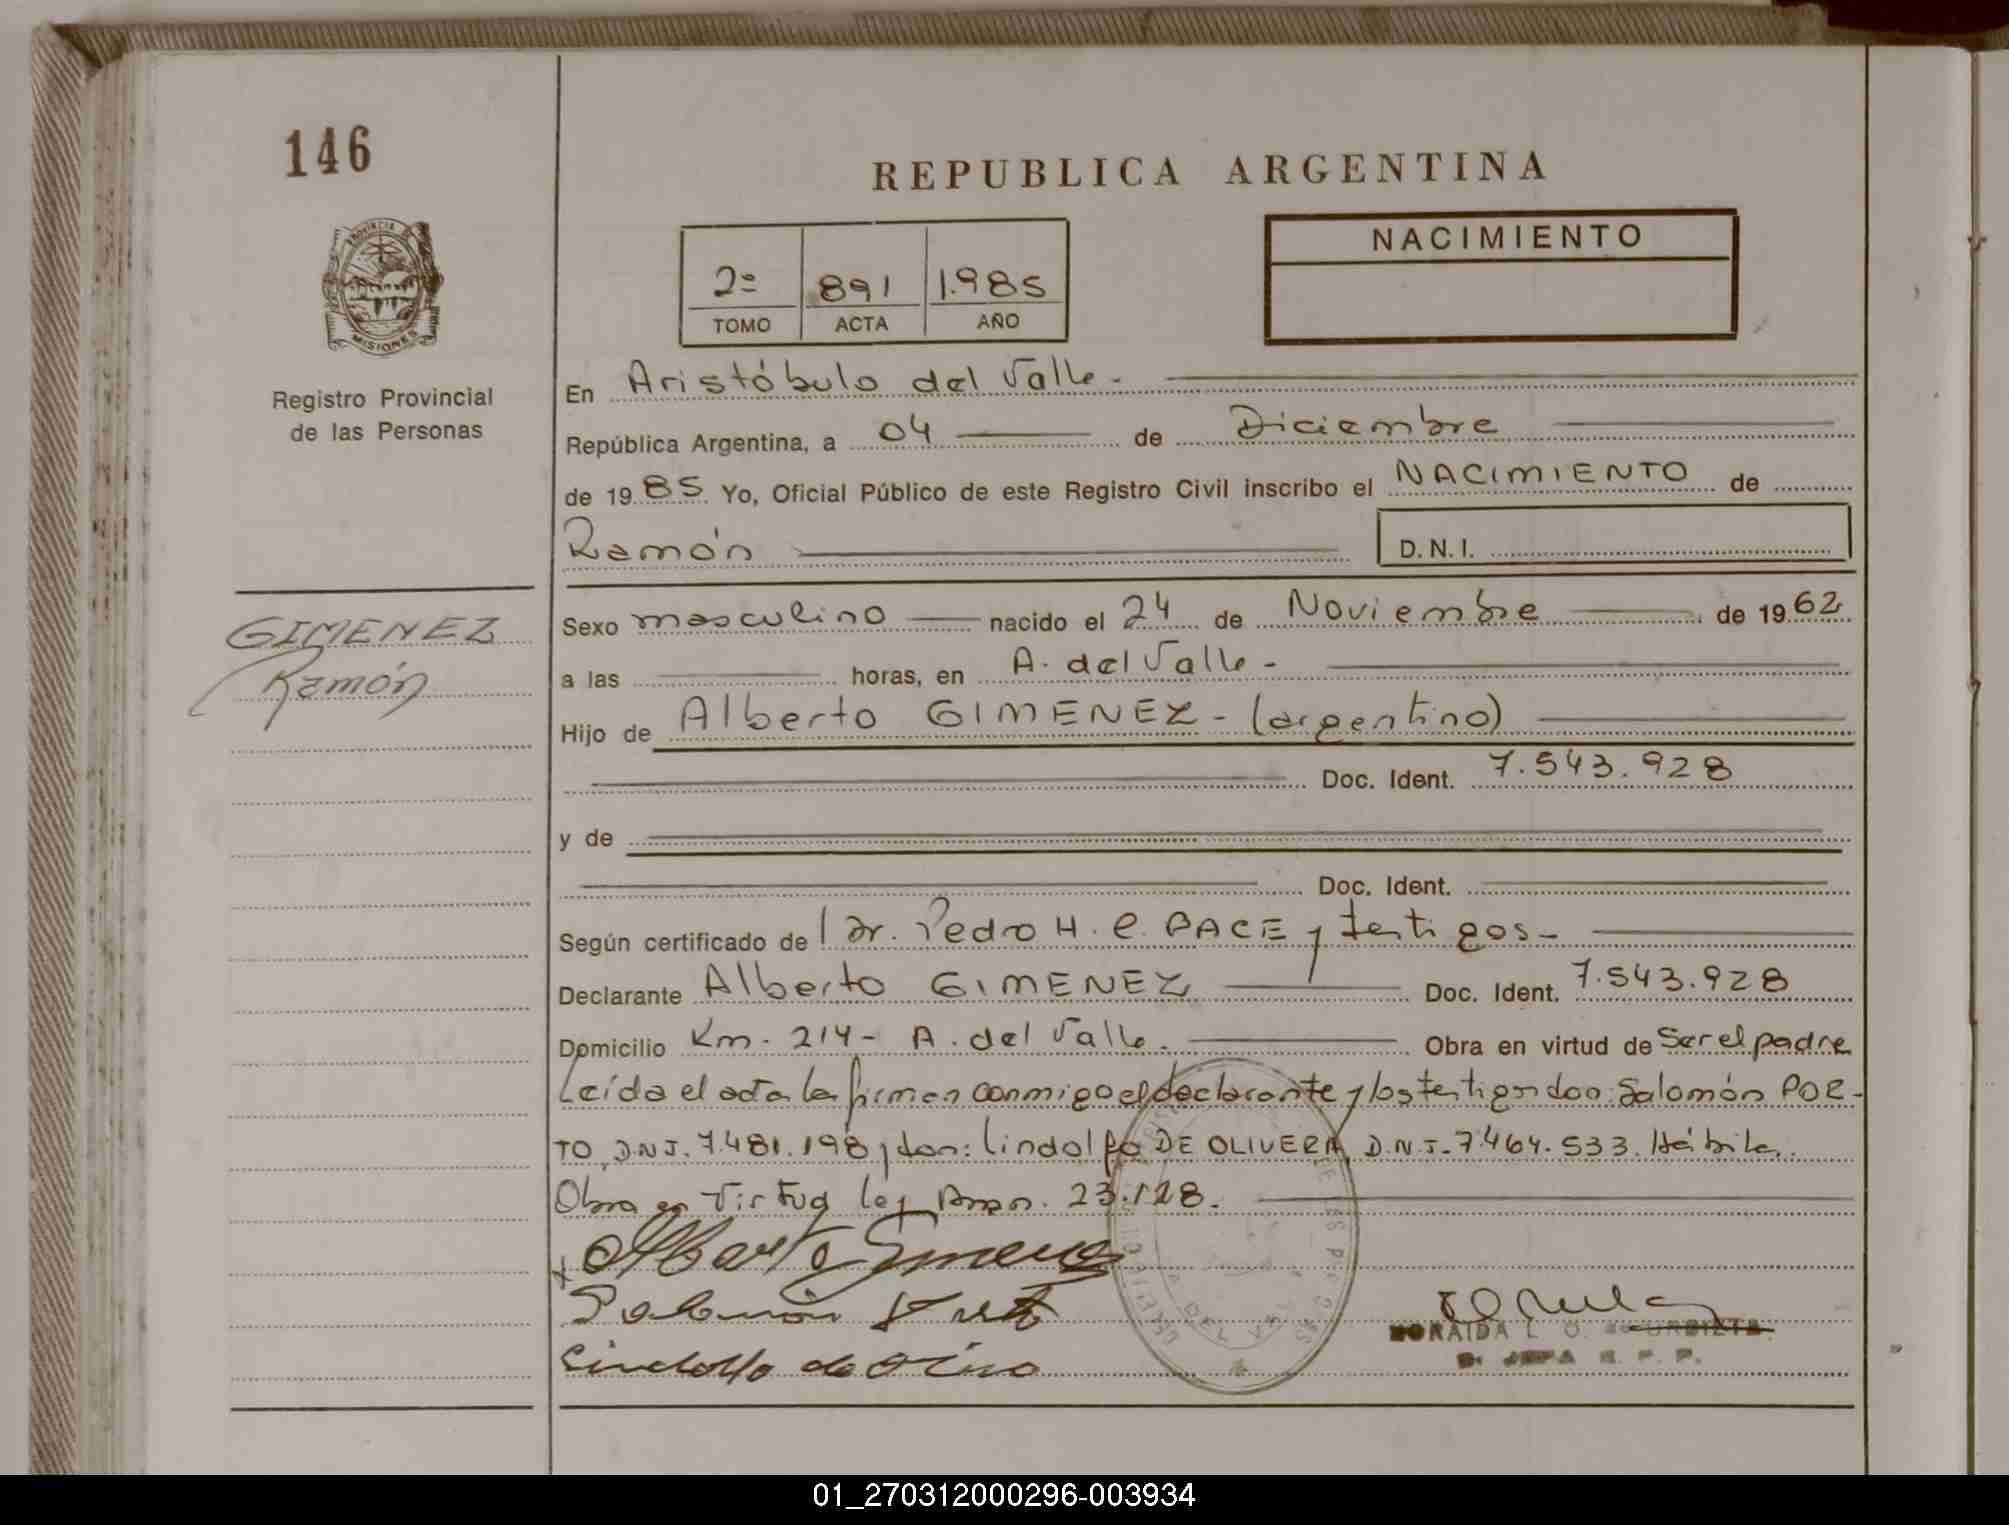 146
REPUBLICA ARGENTINA
PROVINCIA DE MISIONES
Registro Provincial
de las Personas
2º 891 1.985
TOMO ACTA AÑO
NACIMIENTO
En Aristóbulo del Valle.-
República Argentina, a 04 de Diciembre
de 1985. Yo, Oficial Público de este Registro Civil inscribo el NACIMIENTO de
Ramón
D.N.I.
GIMENEZ
Ramón
Sexo masculino nacido el 24 de Noviembre de 1962
a las horas, en A. del Valle-
Hijo de Alberto GIMENEZ - (argentino)
Doc. Ident. 7.543.928
y de
Doc. Ident.
Según certificado de Dr. Pedro H. C. PACE y testigos-
Declarante Alberto GIMENEZ Doc. Ident. 7.543.928
Domicilio Km. 214- A. del Valle. Obra en virtud de Ser el padre
Leída el acta la firman conmigo el declarante y los testigos don: Salomón POR-
TO, D.N.I. 7.481.198 y don: Lindolfo DE OLIVERA, D.N.I. 7.464.533. Hábiles.
Obra en Virtud ley 23.128.
Alberto Gimenez
Salomón
Lindolfo de
DEL VALLE
ZORAIDA L. O.
JEFA R. P. P.
01_270312000296-003934